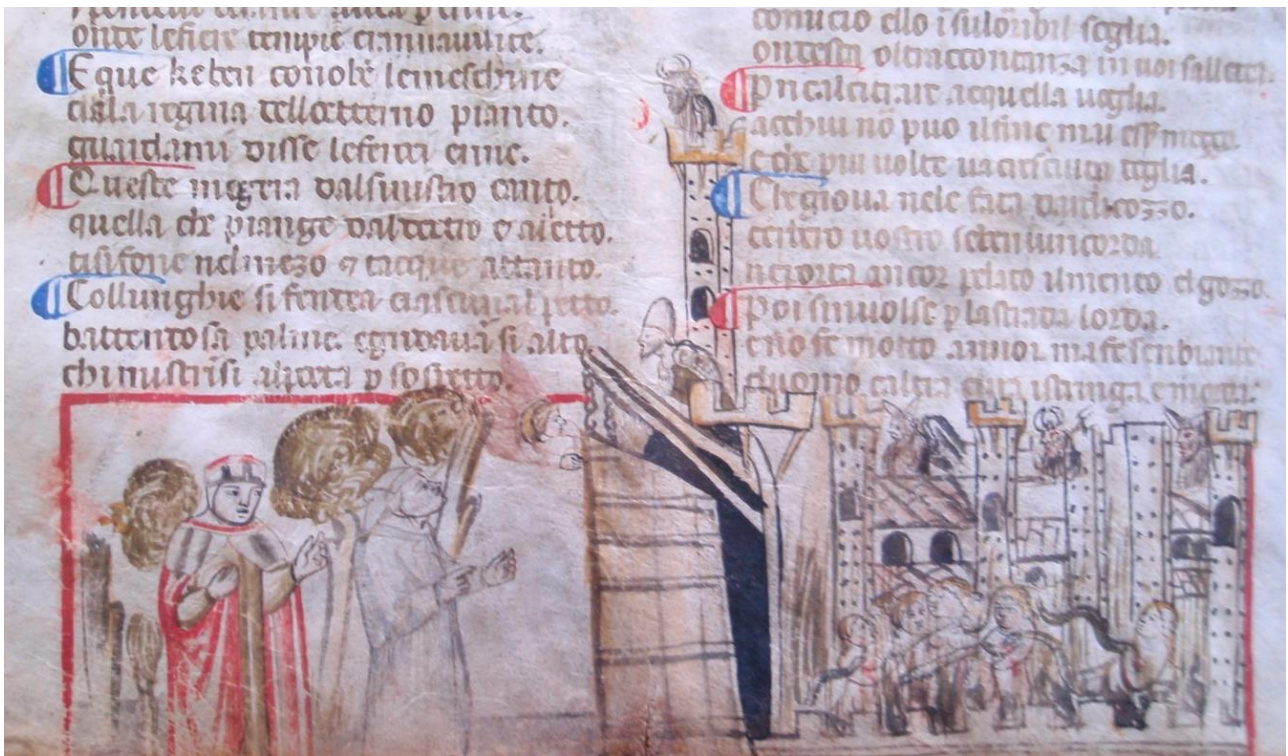 onde lefiere tempie eranauuite.
E que ke ben conobe lemeschine
dela regina delletterno pianto.
guardami disse leferoci erine.
Queste megera dalsinistro canto.
quella che piange daldestro e aletto.
tisifone nelmezo & tacque attanto.
Collunghie si fendea ciascuna il petto.
battendosa palme. egridauã si alto.
chi mistrisi alpoeta p sospetto.
comicio ello i suloribil soglia.
ondesta oltraccotanza in uoi salletta.
Pricalcitrate acquella uoglia.
acchui nõ puo ilfine mai esser
e che piu uolte uacresciuto doglia.
Che gioua nele fata dardicozzo.
cerbero uostro sebenuiricorda
neporta ancor pelato ilmento elgozzo.
Poi siriuolse p lastrada lorda.
e no fe motto annoi mafe senbiante
duomo cura istringa emorda: